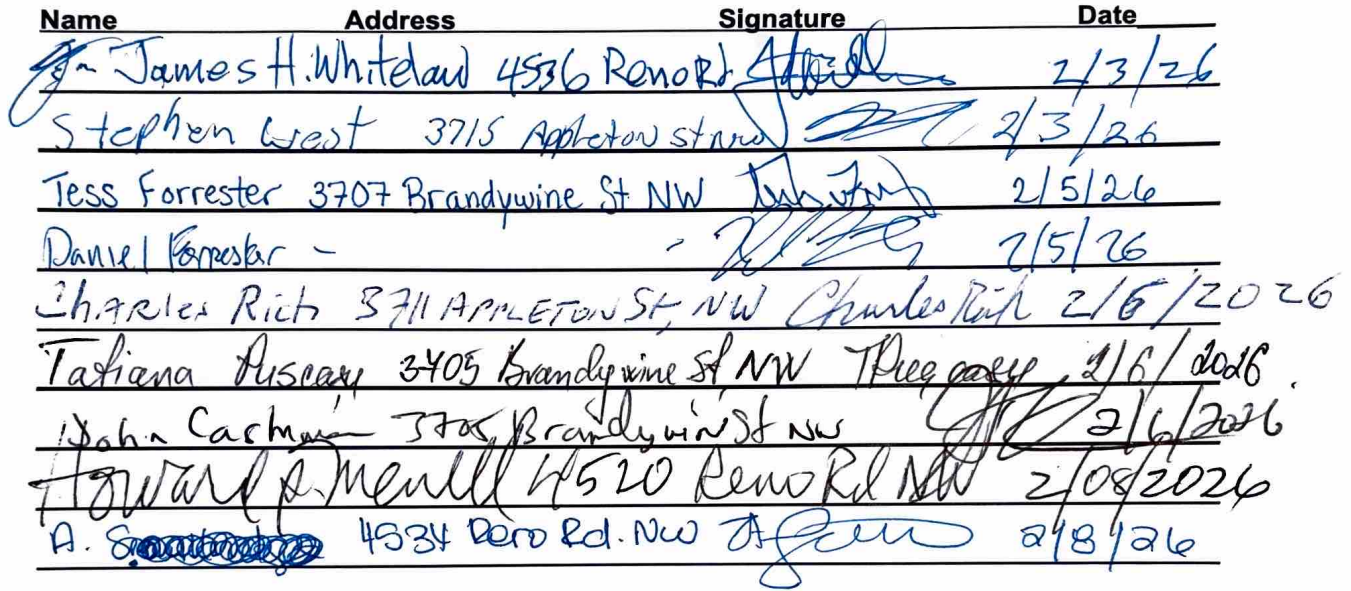 Name Address Signature Date
James H. Whitelaw 4536 Reno Rd 2/3/26
Stephen West 3715 Appleton St NW 2/3/26
Tess Forrester 3707 Brandywine St NW 2/5/26
Daniel Forrester - - 2/5/26
Charles Rich 3711 APPLETON St, NW Charles Rich 2/6/2026
Tatiana 3705 Brandywine St NW 2/6/2026
John 3705 Brandywine St NW 2/6/2026
Howard A. Merrill 4520 Reno Rd NW 2/08/2026
A. 4534 Reno Rd. NW 2/8/26